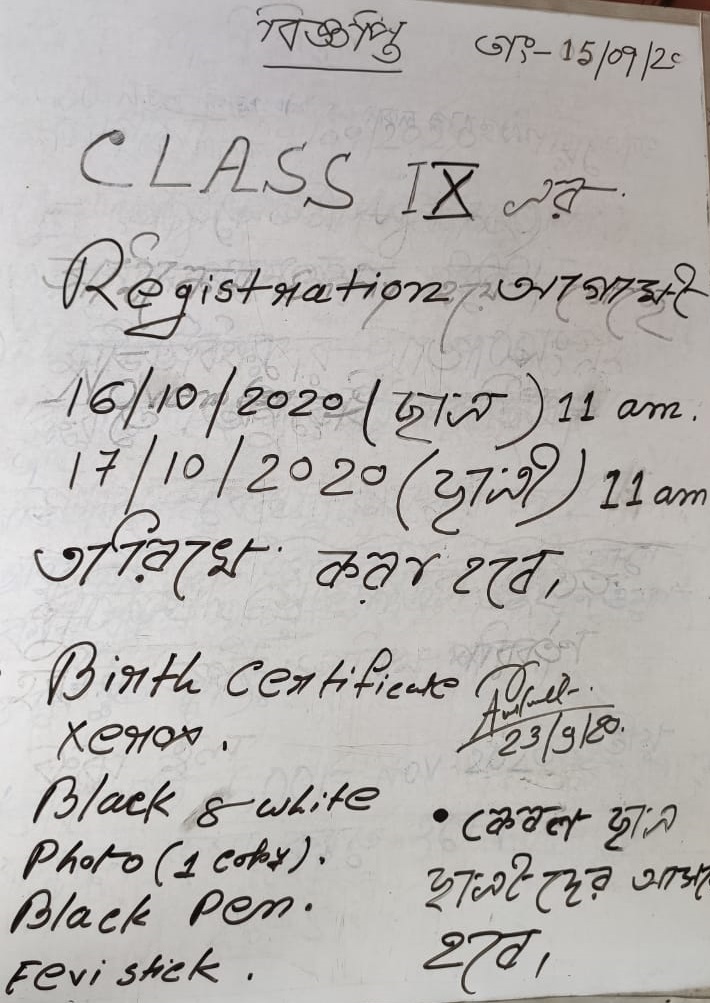 বিজ্ঞপ্তি তাং- 15/09/20
CLASS IX এর
Registration আগামী
16/10/2020 (ছাত্র) 11 am.
17/10/2020 (ছাত্রী) 11 am
তারিখে করা হবে,
Birth Certificate
Xerox.
23/9/20.
Black & white
Photo (1 copy).
Black Pen.
Fevi stick.
• কেবল ছাত্র
ছাত্রীদের আসতে
হবে,